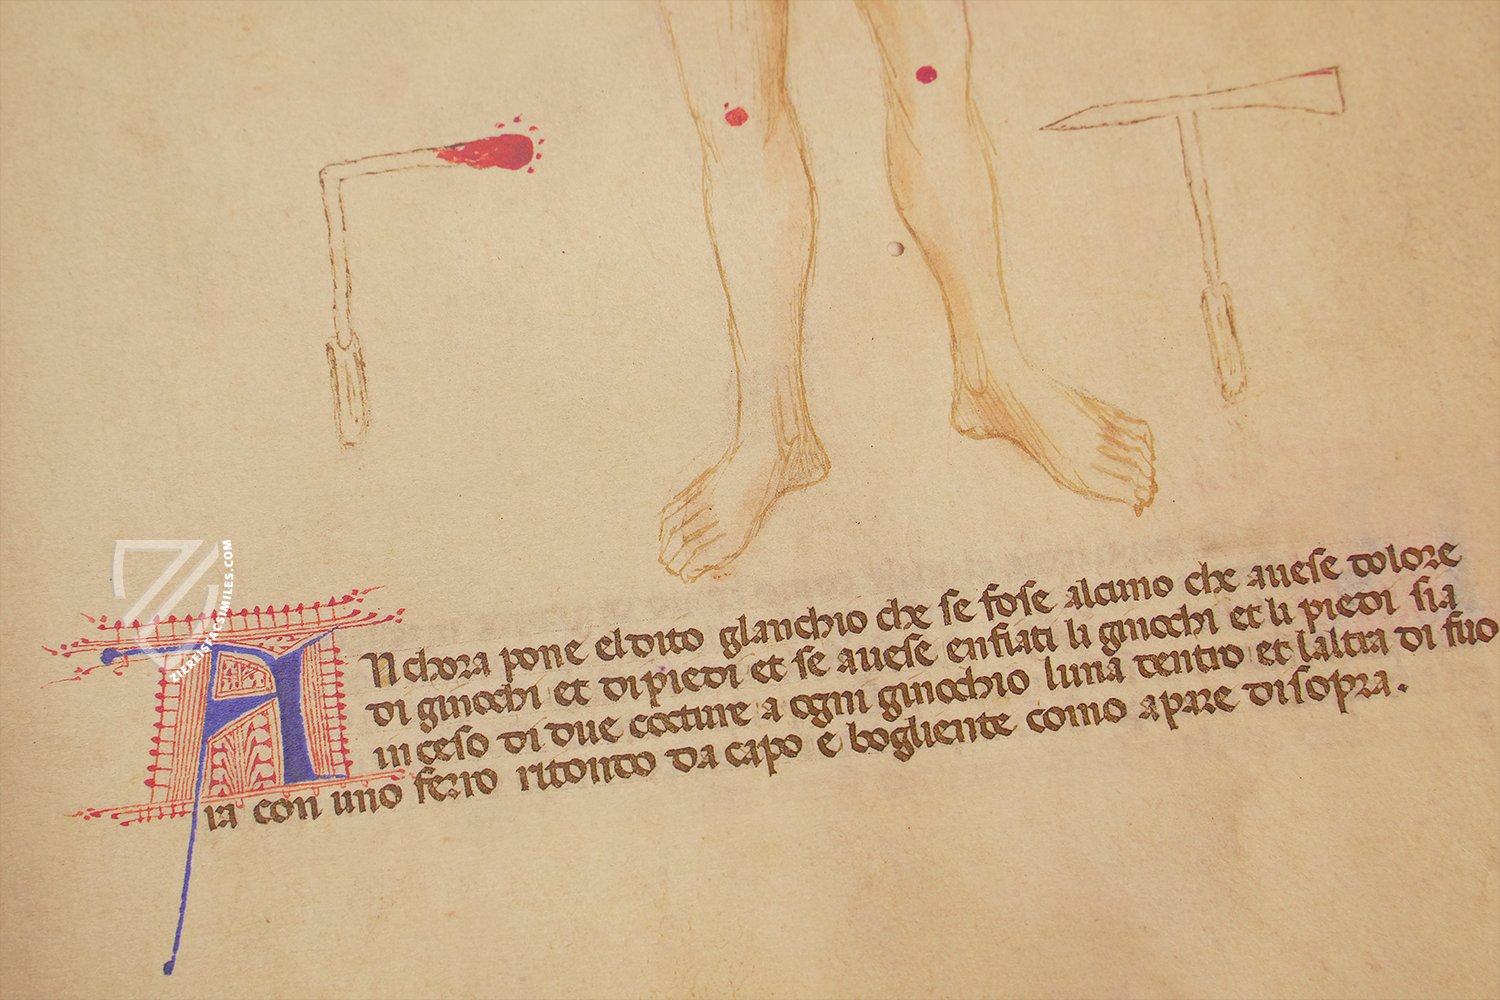 Anchora pone el dito glanchio che se fose alcuno che avese dolore
di ginochi et di piedi et se avese enfiati li ginochi et li piedi sia
inceso di due cocture a ogni ginochio luna dentro et laltra di fuo
ra con uno ferro ritondo da capo e bogliente como apare disopra.
ZIEREISFACSIMILES.COM